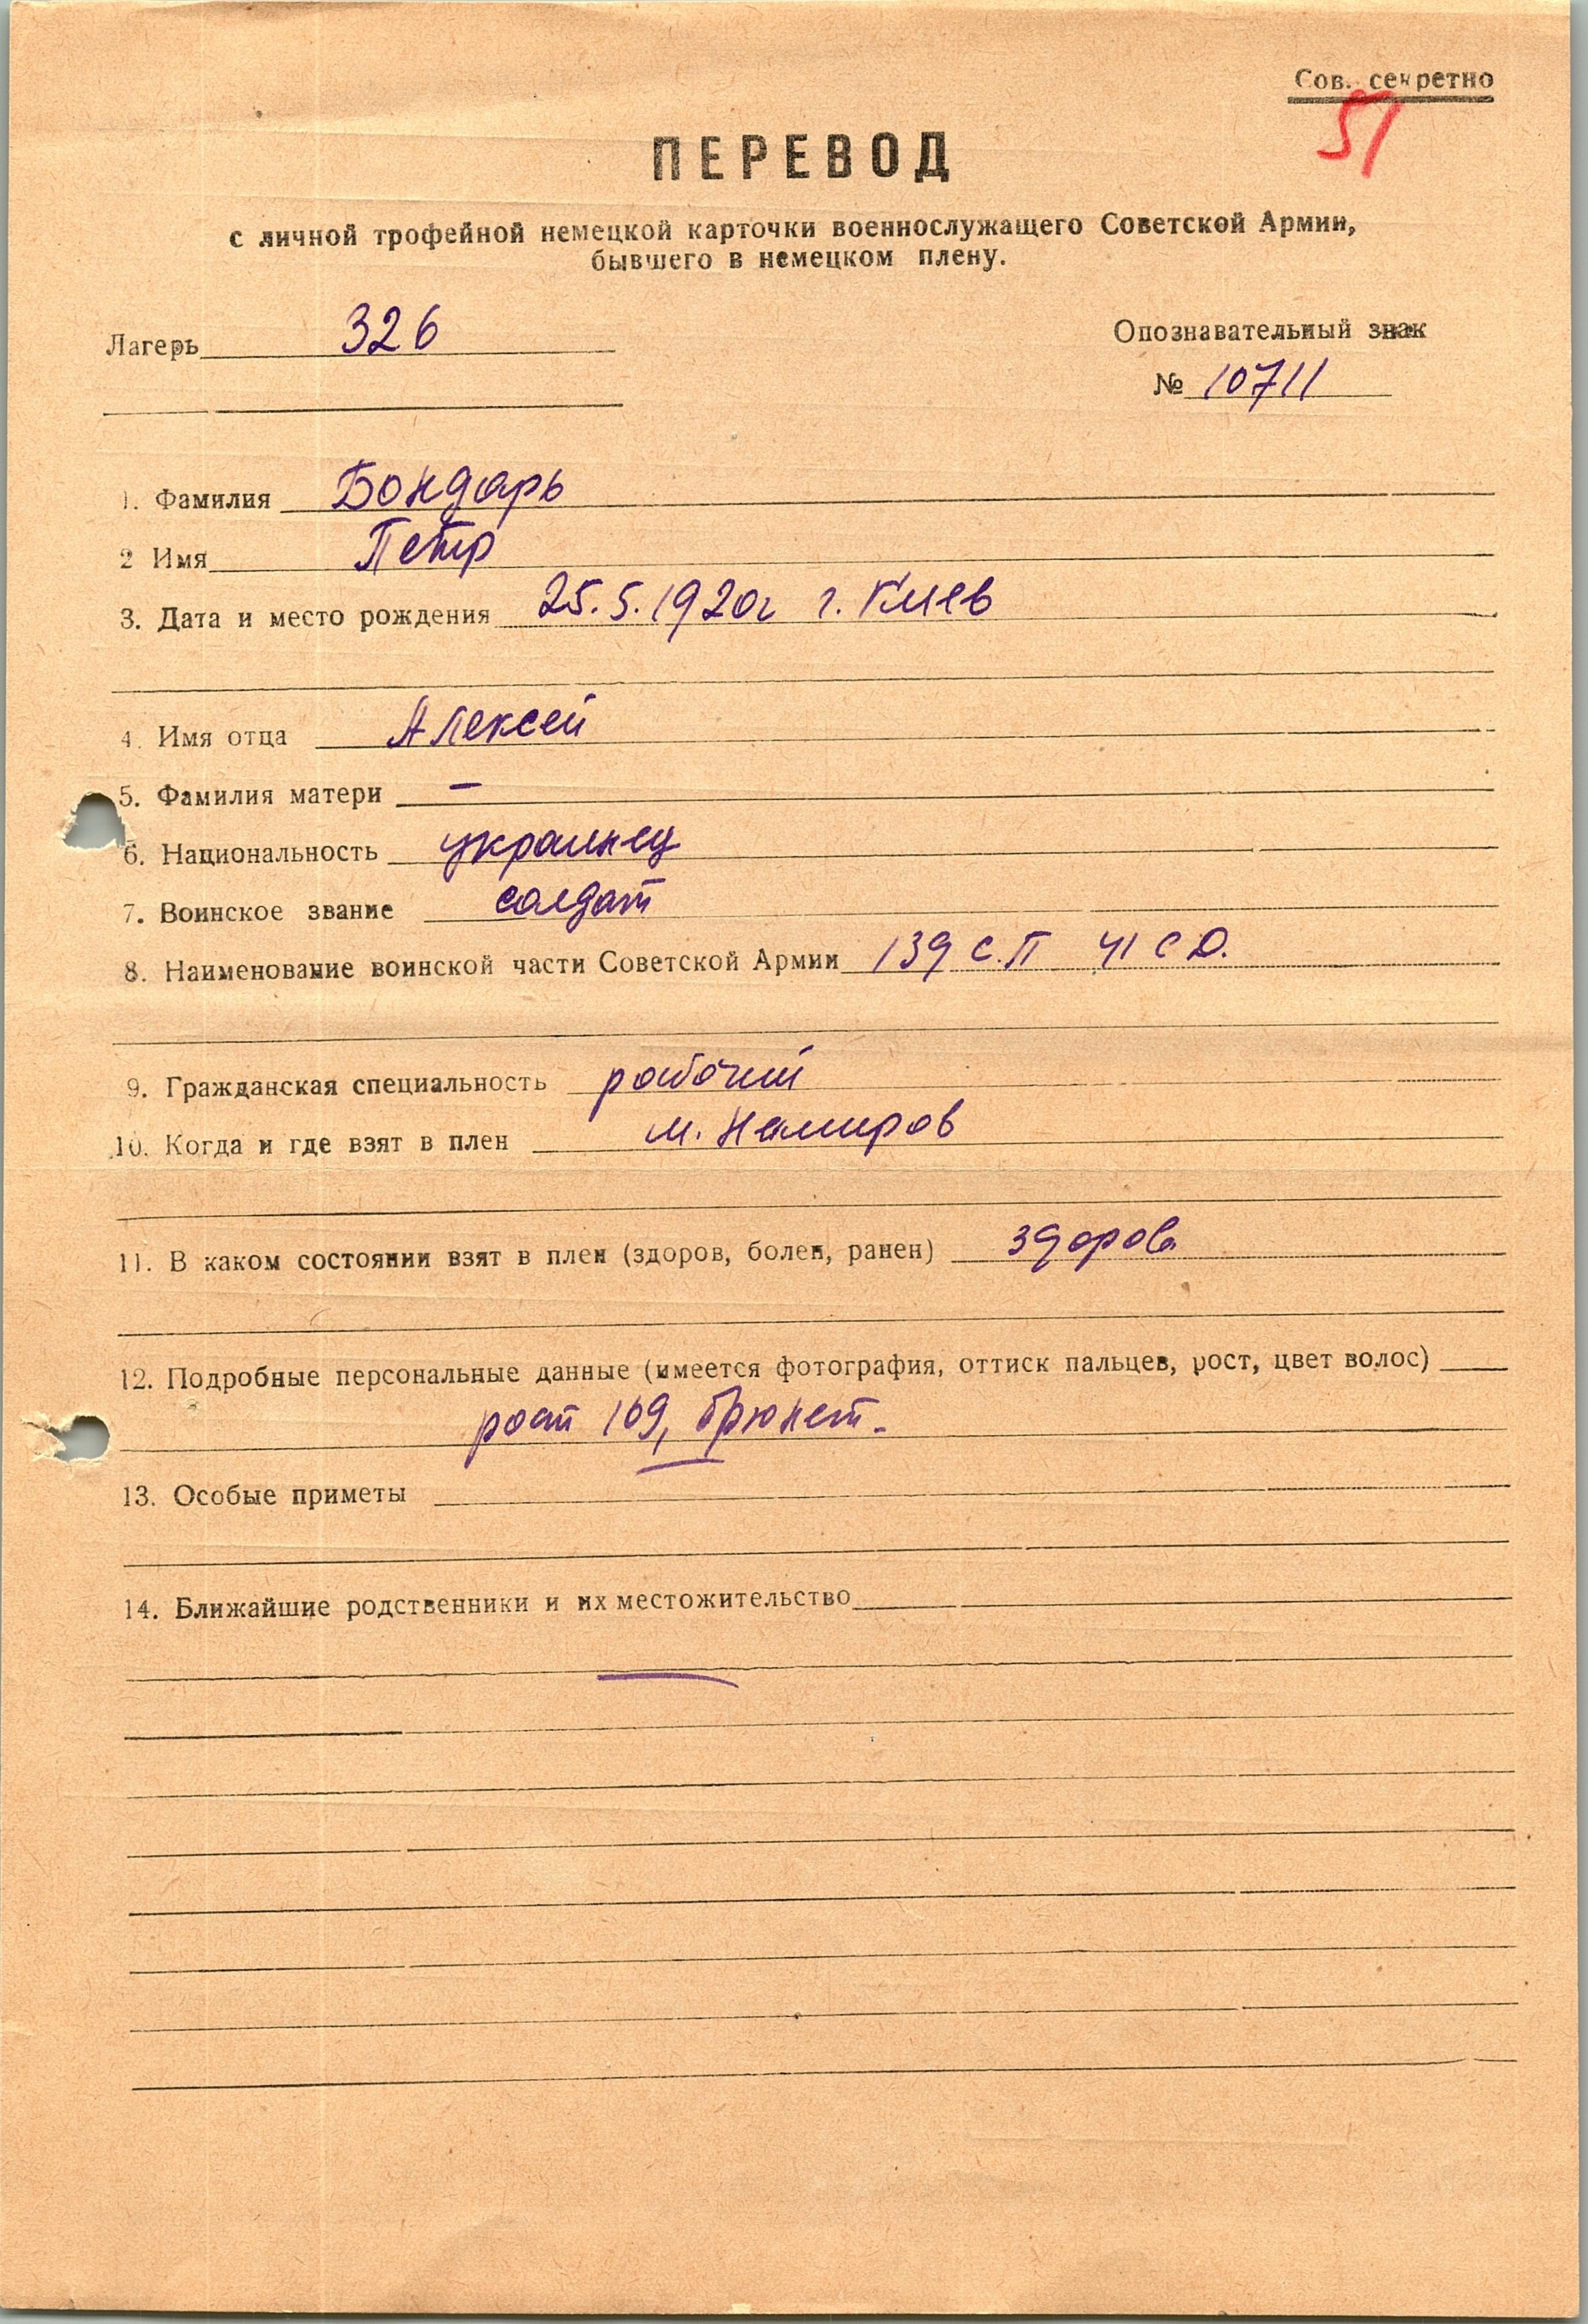 Сов. секретно
51
ПЕРЕВОД
с личной трофейной немецкой карточки военнослужащего Советской Армии,
бывшего в немецком плену.
Лагерь 326
Опознавательный знак
№ 10711
1. Фамилия Бондарь
2 Имя Петр
3. Дата и место рождения 25.5.1920г г. Киев
4. Имя отца Алексей
5. Фамилия матери –
6. Национальность украинец
7. Воинское звание солдат
8. Наименование воинской части Советской Армии 139 С.П 41 С Д.
9. Гражданская специальность рабочий
10. Когда и где взят в плен м. Немиров
11. В каком состоянии взят в плен (здоров, болен, ранен) здоров
12. Подробные персональные данные (имеется фотография, оттиск пальцев, рост, цвет волос)
рост 169, брюнет.
13. Особые приметы
14. Ближайшие родственники и их местожительство
—